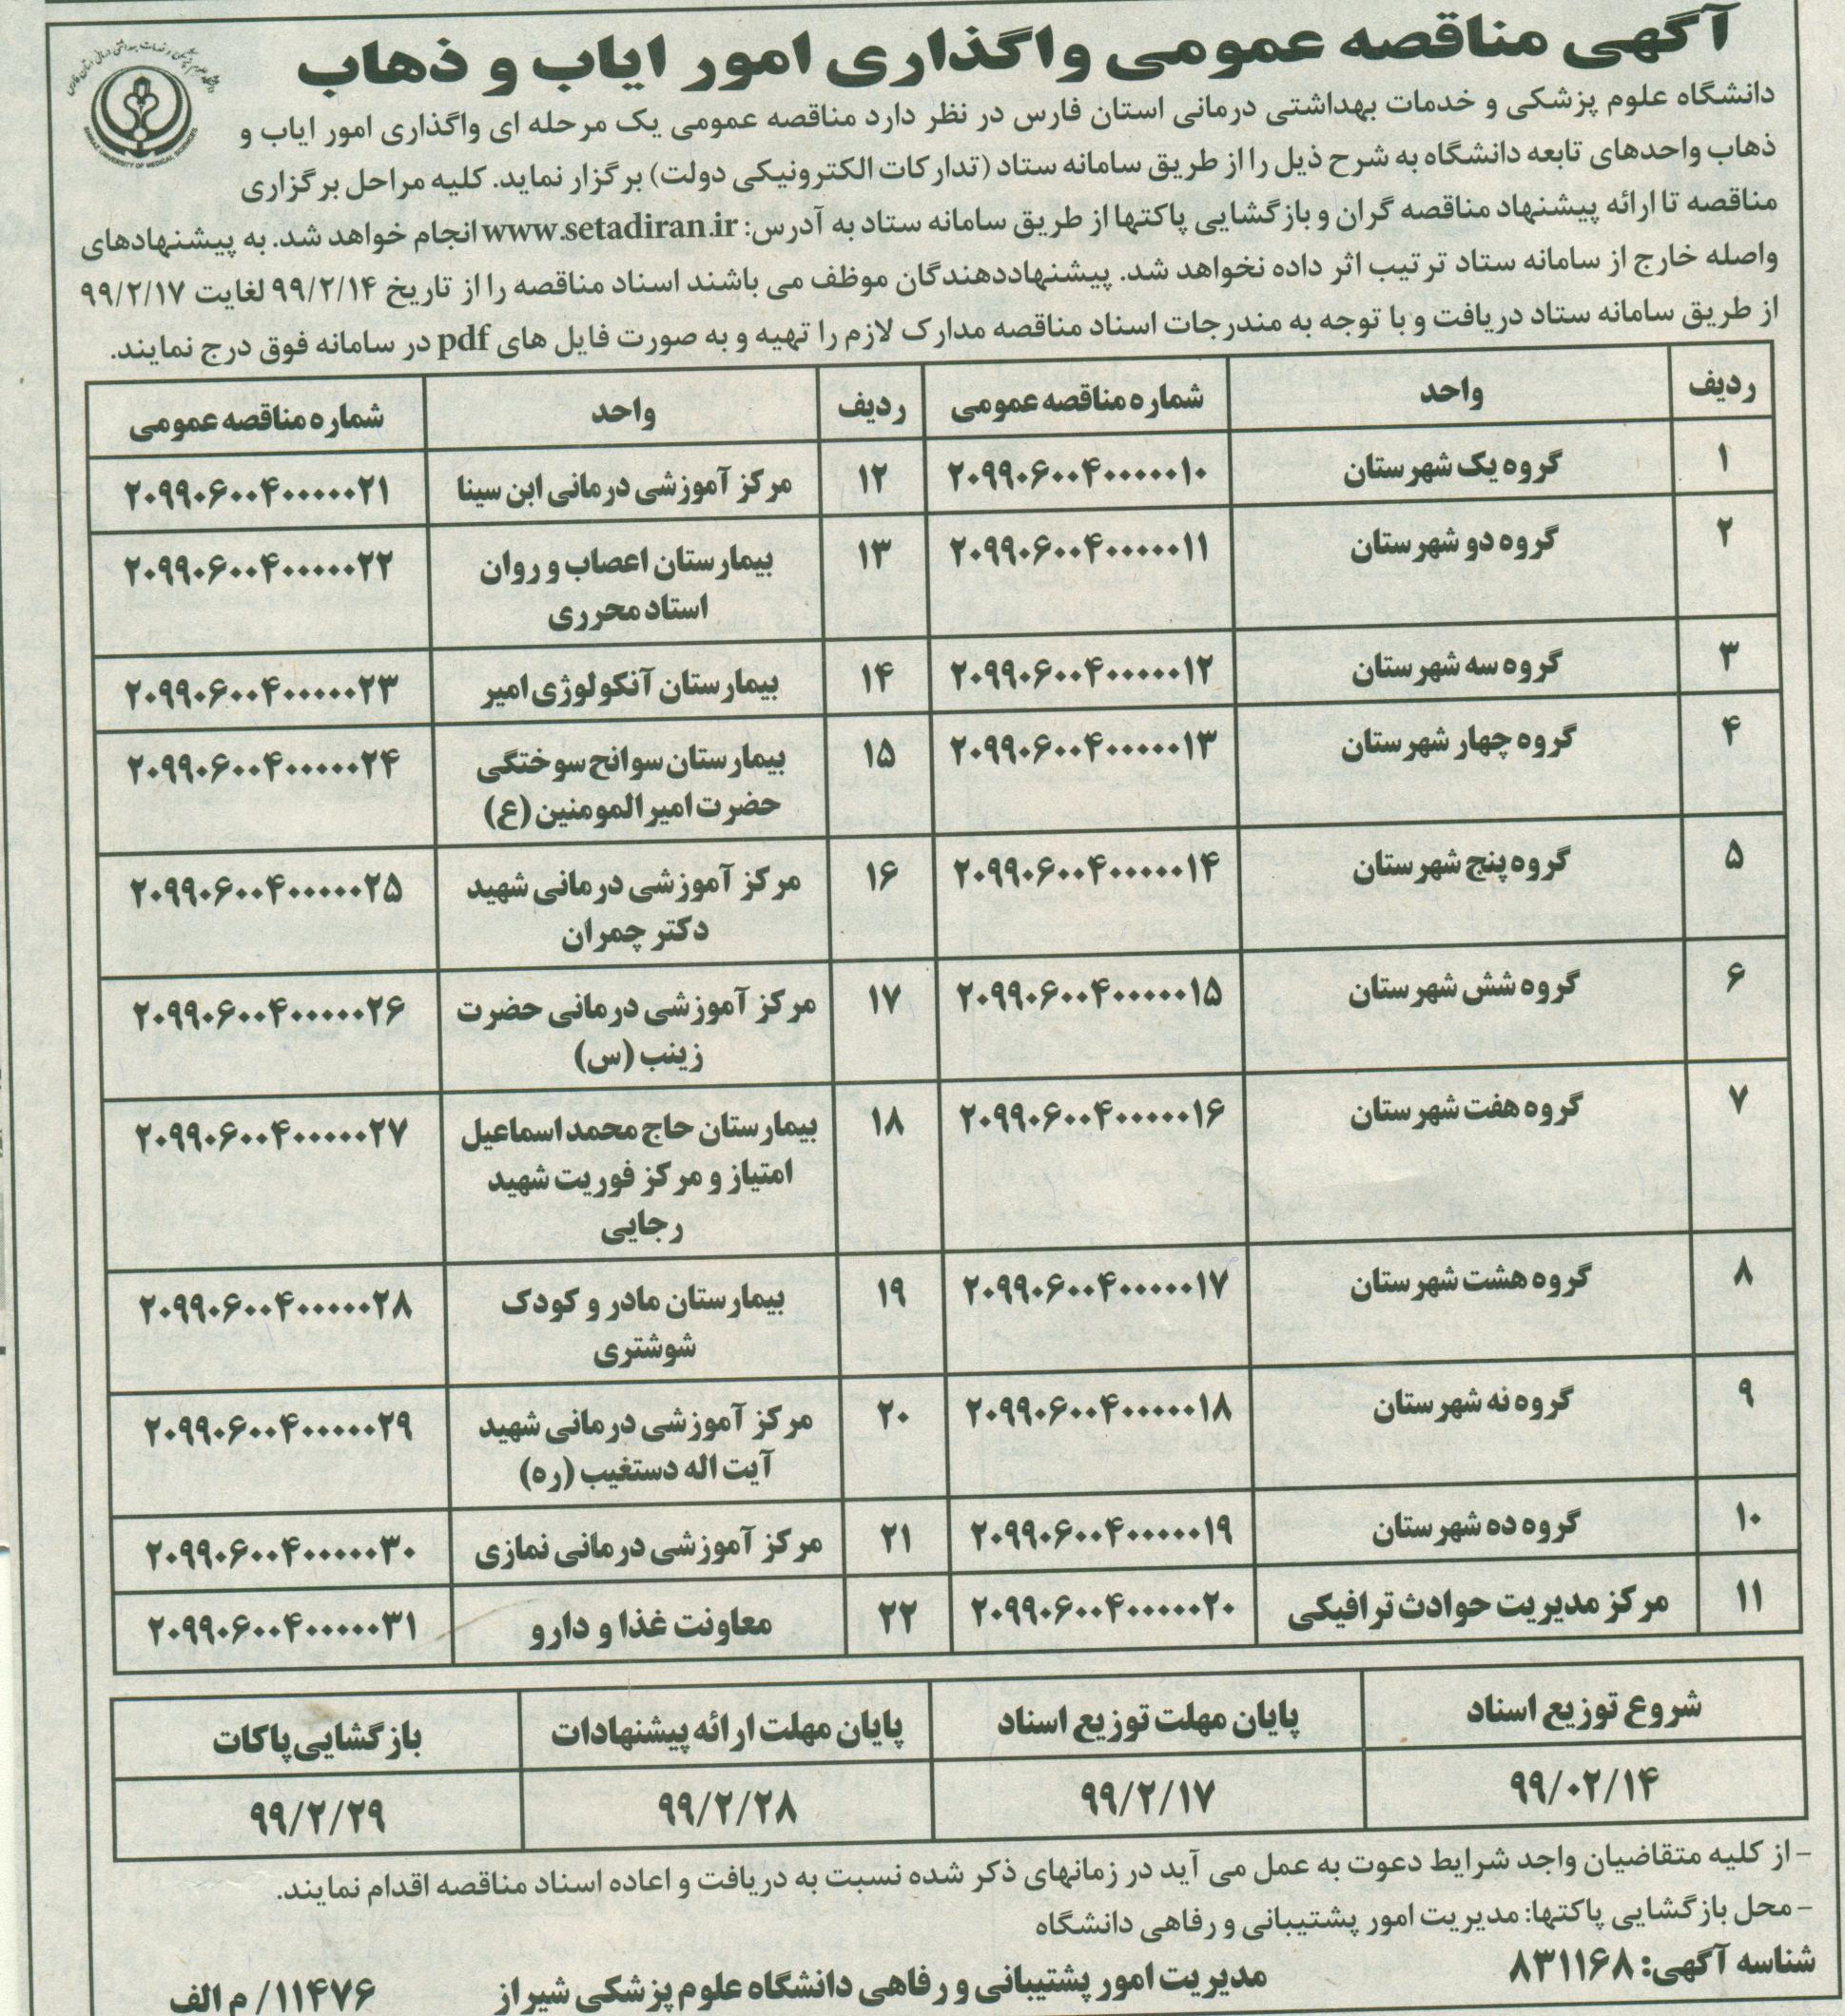 آگهی مناقصه عمومی واگذاری امور ایاب و ذهاب
SHIRAZ UNIVERSITY OF MEDICAL SCIENCES
دانشگاه علوم پزشکی و خدمات بهداشتی درمانی استان فارس در نظر دارد مناقصه عمومی یک مرحله ای واگذاری امور ایاب و
ذهاب واحدهای تابعه دانشگاه به شرح ذیل را از طریق سامانه ستاد (تدارکات الکترونیکی دولت) برگزار نماید. کلیه مراحل برگزاری
مناقصه تا ارائه پیشنهاد مناقصه گران و بازگشایی پاکتها از طریق سامانه ستاد به آدرس: www.setadiran.ir انجام خواهد شد. به پیشنهادهای
واصله خارج از سامانه ستاد ترتیب اثر داده نخواهد شد. پیشنهاددهندگان موظف می باشند اسناد مناقصه را از تاریخ ۹۹/۲/۱۴ لغایت ۹۹/۲/۱۷
از طریق سامانه ستاد دریافت و با توجه به مندرجات اسناد مناقصه مدارک لازم را تهیه و به صورت فایل های pdf در سامانه فوق درج نمایند.
ردیف واحد شماره مناقصه عمومی ردیف واحد شماره مناقصه عمومی
۱ گروه یک شهرستان ۲۰۹۹۰۶۰۰۴۰۰۰۰۰۱۰ ۱۲ مرکز آموزشی درمانی ابن سینا ۲۰۹۹۰۶۰۰۴۰۰۰۰۰۲۱
۲ گروه دو شهرستان ۲۰۹۹۰۶۰۰۴۰۰۰۰۰۱۱ ۱۳ بیمارستان اعصاب و روان ۲۰۹۹۰۶۰۰۴۰۰۰۰۰۲۲
استاد محرری
۳ گروه سه شهرستان ۲۰۹۹۰۶۰۰۴۰۰۰۰۰۱۲ ۱۴ بیمارستان آنکولوژی امیر ۲۰۹۹۰۶۰۰۴۰۰۰۰۰۲۳
۴ گروه چهار شهرستان ۲۰۹۹۰۶۰۰۴۰۰۰۰۰۱۳ ۱۵ بیمارستان سوانح سوختگی ۲۰۹۹۰۶۰۰۴۰۰۰۰۰۲۴
حضرت امیر المومنین (ع)
۵ گروه پنج شهرستان ۲۰۹۹۰۶۰۰۴۰۰۰۰۰۱۴ ۱۶ مرکز آموزشی درمانی شهید ۲۰۹۹۰۶۰۰۴۰۰۰۰۰۲۵
دکتر چمران
۶ گروه شش شهرستان ۲۰۹۹۰۶۰۰۴۰۰۰۰۰۱۵ ۱۷ مرکز آموزشی درمانی حضرت ۲۰۹۹۰۶۰۰۴۰۰۰۰۰۲۶
زینب (س)
۷ گروه هفت شهرستان ۲۰۹۹۰۶۰۰۴۰۰۰۰۰۱۶ ۱۸ بیمارستان حاج محمد اسماعیل ۲۰۹۹۰۶۰۰۴۰۰۰۰۰۲۷
امتیاز و مرکز فوریت شهید
رجایی
۸ گروه هشت شهرستان ۲۰۹۹۰۶۰۰۴۰۰۰۰۰۱۷ ۱۹ بیمارستان مادر و کودک ۲۰۹۹۰۶۰۰۴۰۰۰۰۰۲۸
شوشتری
۹ گروه نه شهرستان ۲۰۹۹۰۶۰۰۴۰۰۰۰۰۱۸ ۲۰ مرکز آموزشی درمانی شهید ۲۰۹۹۰۶۰۰۴۰۰۰۰۰۲۹
آیت اله دستغیب (ره)
۱۰ گروه ده شهرستان ۲۰۹۹۰۶۰۰۴۰۰۰۰۰۱۹ ۲۱ مرکز آموزشی درمانی نمازی ۲۰۹۹۰۶۰۰۴۰۰۰۰۰۳۰
۱۱ مرکز مدیریت حوادث ترافیکی ۲۰۹۹۰۶۰۰۴۰۰۰۰۰۲۰ ۲۲ معاونت غذا و دارو ۲۰۹۹۰۶۰۰۴۰۰۰۰۰۳۱
شروع توزیع اسناد پایان مهلت توزیع اسناد پایان مهلت ارائه پیشنهادات بازگشایی پاکات
۹۹/۰۲/۱۴ ۹۹/۲/۱۷ ۹۹/۲/۲۸ ۹۹/۲/۲۹
- از کلیه متقاضیان واجد شرایط دعوت به عمل می آید در زمانهای ذکر شده نسبت به دریافت و اعاده اسناد مناقصه اقدام نمایند.
- محل بازگشایی پاکتها: مدیریت امور پشتیبانی و رفاهی دانشگاه
شناسه آگهی: ۸۳۱۱۶۸ مدیریت امور پشتیبانی و رفاهی دانشگاه علوم پزشکی شیراز ۱۱۴۷۶/ م الف